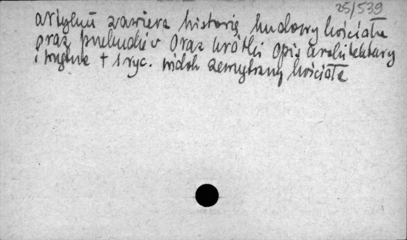 25/539
artykuł zawiera historię budowy kościoła
oraz przebudów oraz krótki opis architektury
i wnętrza + 1 ryc. widok zewnętrzny kościoła